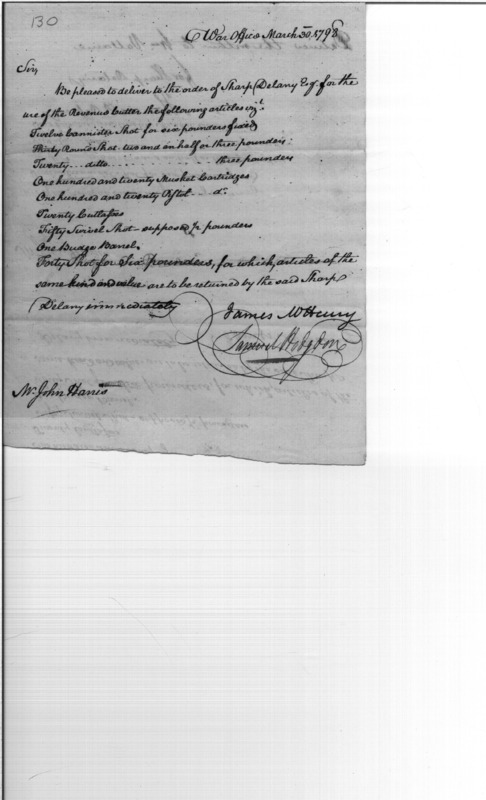 130
War Office March 30. 1798
Sir,
Be pleased to deliver to the order of Sharp Delany Esqr. for the
use of the Revenue Cutter the following articles vizt.
Twelve Cannister Shot for six pounders fixed
Thirty Round Shot two and an half or three pounders
Twenty ... ditto ... three pounders
One hundred and twenty Musket Cartridges
One hundred and twenty Pistol ... do.
Twenty Cutlasses
Fifty Swivel Shot - supposed pounders
One Budge Barrel
Forty Shot for Six pounders, for which, articles of the
same kind and value are to be returned by the said Sharp
Delany immediately
James McHenry
Samuel Hodgdon
Mr. John Harris